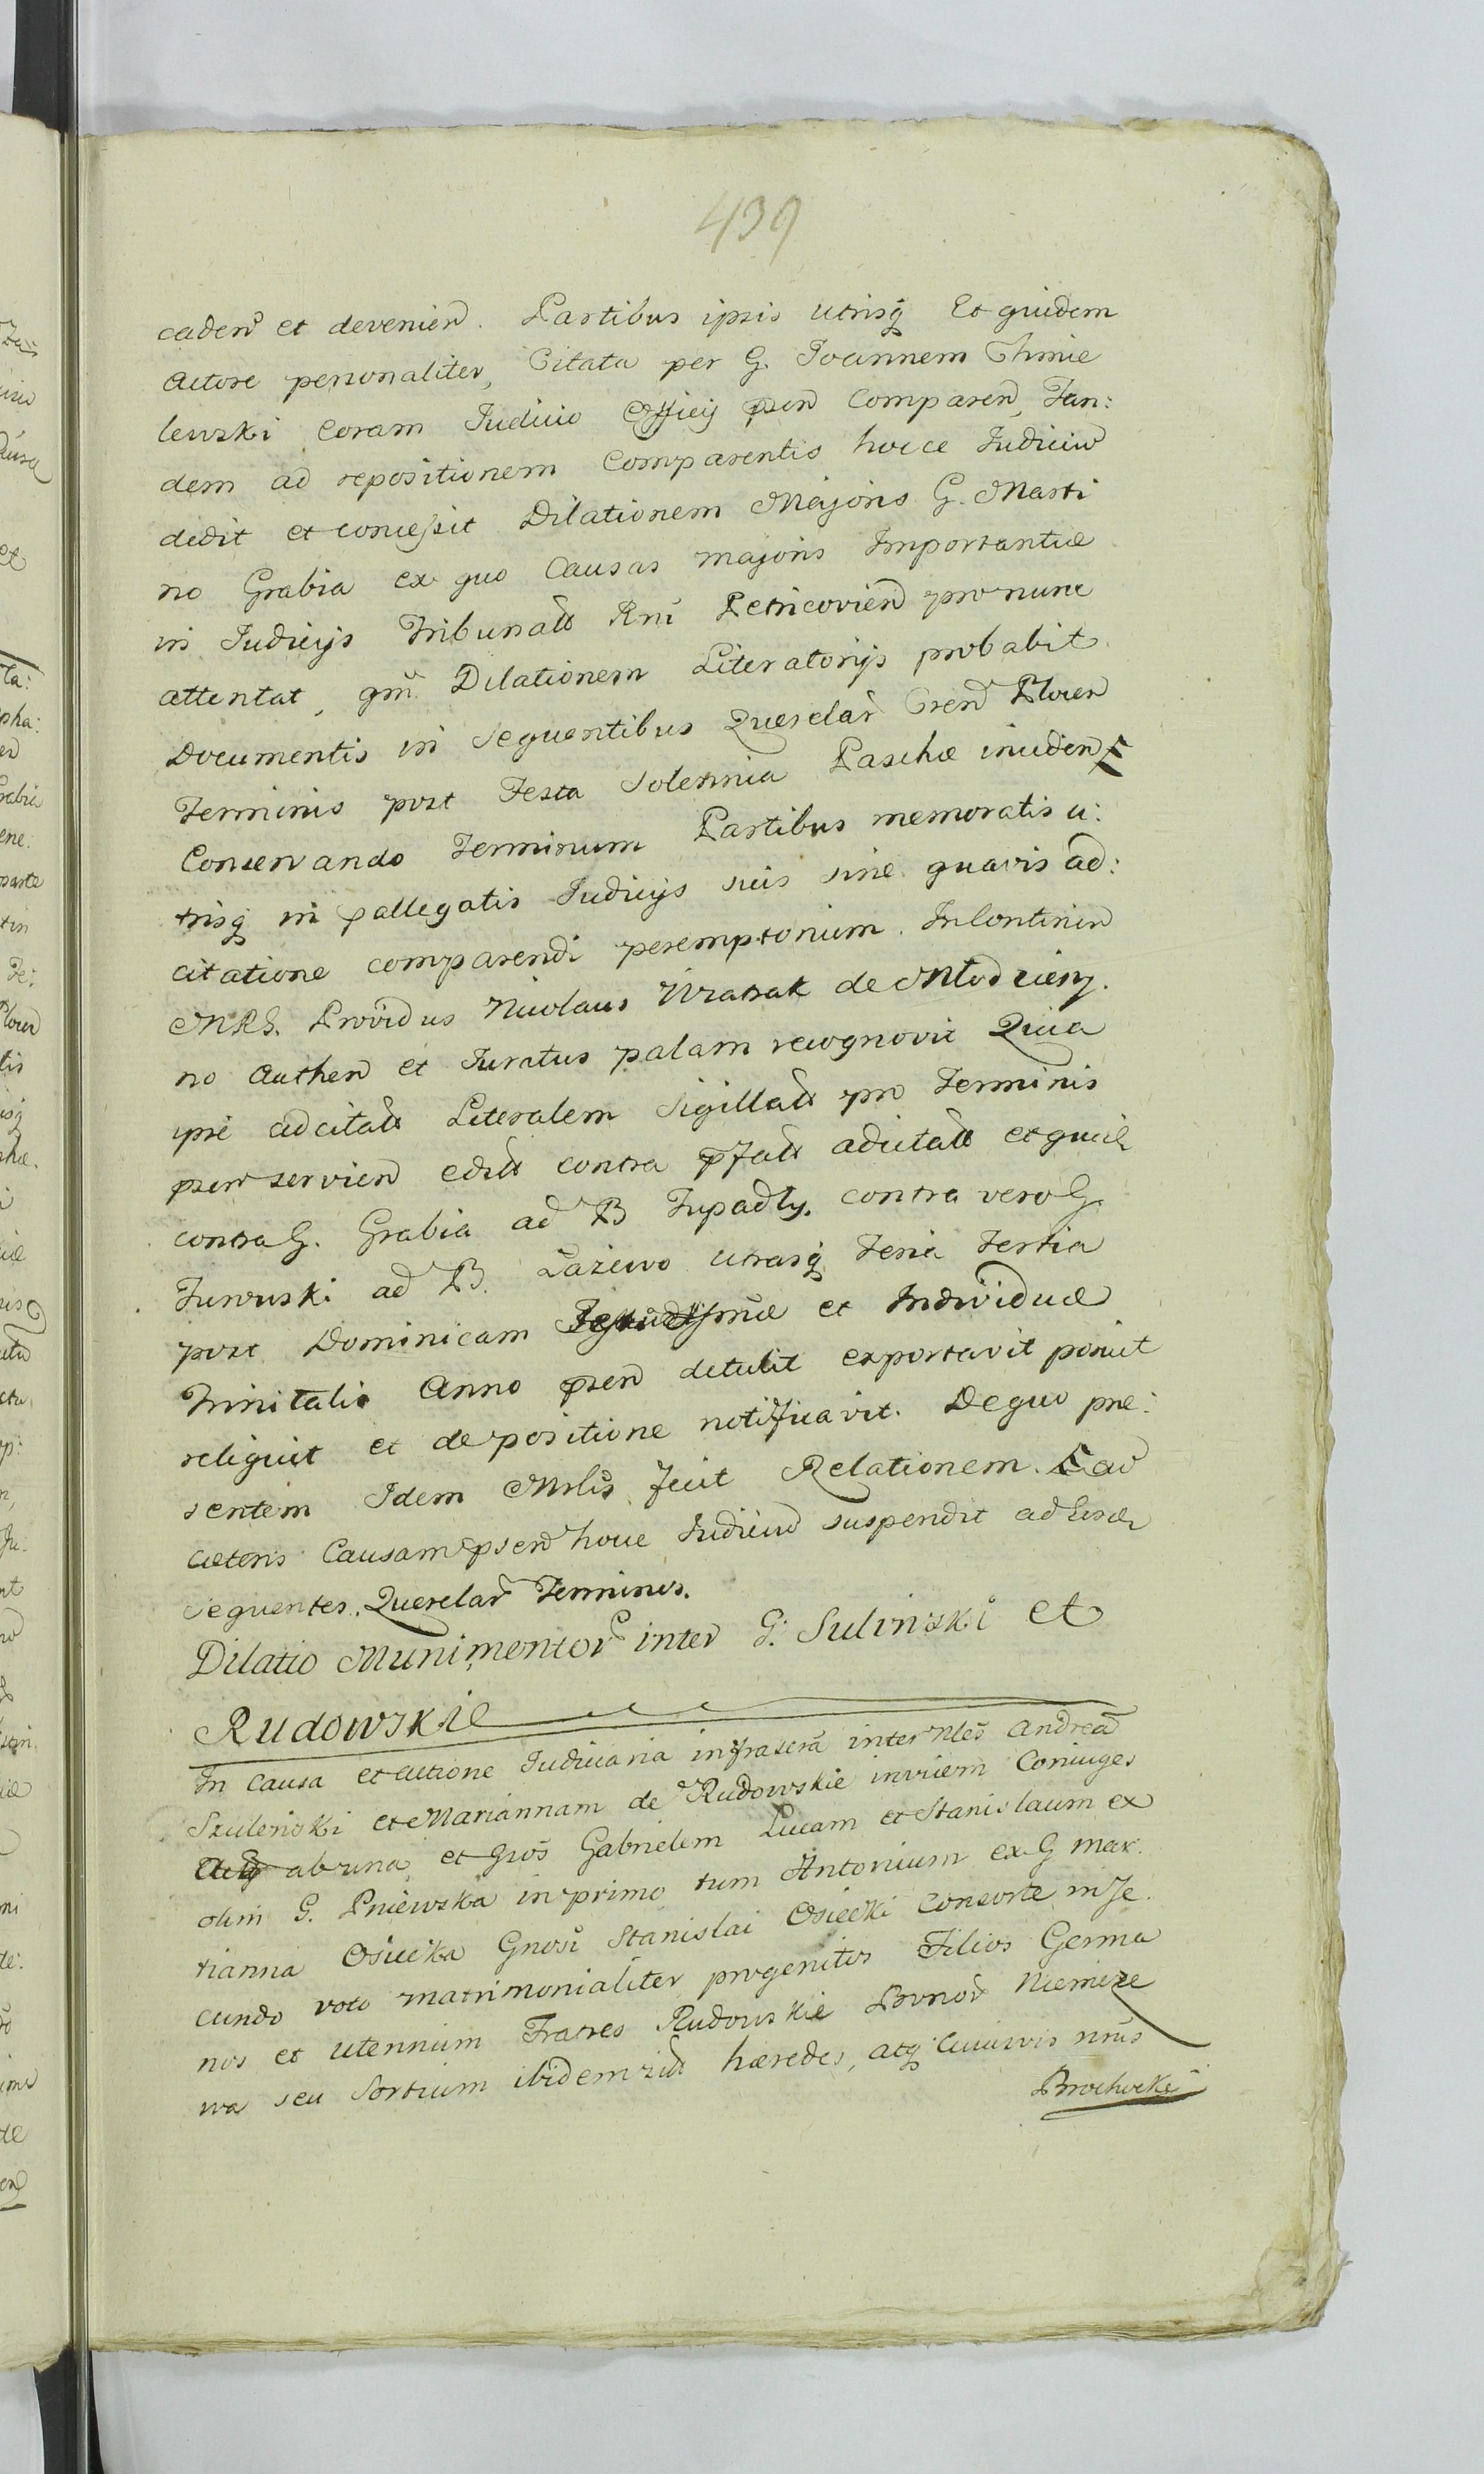 439
caden et devenien. Partibus ipsis utrisq Et quidem
Actore personaliter, Citata per G. Joannem Chmie
lewski coram Judicio Officij psen Comparen, Tan:
dem ad repositionem Comparentis hocce Judiciu
dedit et concessit Dilationem Majoris G. Marti
no Grabia ex quo Causas majoris Importantiæ
in Judicijs Tribunalt Rni Petricovien pro nunc
attentat, qm Dilationem Literatorijs probabit
Documentis in sequentibus Querelar Cren Plocen
Terminis post Festa Solennia Paschæ inciden
Conservando Terminum Partibus memoratis u:
trisq in pallegatis Judicijs suis sine quavis ad:
citatione comparendi peremptorium. InContinen
MRG. Providus Nicolaus Wratak de Mlodziesz.
no Authen et Juratus palam recognovit Quia
ipse adcitatt Literalem Sigillatt pro Terminis
psen servien editt contra pfatt adcitatt et quid
contra G. Grabia ad B Tupadly. contra vero G.
Turwski ad B. Łażewo utrasq Feria Tertia
post Dominicam et Individuæ
Trinitatis Anno psen detulit exportavit posuit
reliquit et de positione notificavit. De quo præ:
sentem Idem Mrlis fecit Relationem. ad
cæteris Causam psen hocce Judiciu suspendit ad
sequentes Querelar Terminos.
Dilatio Munimentor inter G. Sulinski et
Rudowskie
In Causa et Actione Judiciaria infrascra inter Nles Andrea
Szulenski et Mariannam de Rudowskie invicem Coniuges
ab una et Gros Gabrielem Lucam et Stanislaum ex
olim G. Pniewska in primo tum Antonium ex G Mar.
rianna Osiecka Gnosi Stanislai Osiecki Consorte in Se.
cundo voto matrimonialiter progenitos Filios Germa
nos et uterinum Fratres Rudowskie Bonor Niemicze
wa seu Sortium ibidem hæredes, atq Cuiusvis nrus
Brochocki